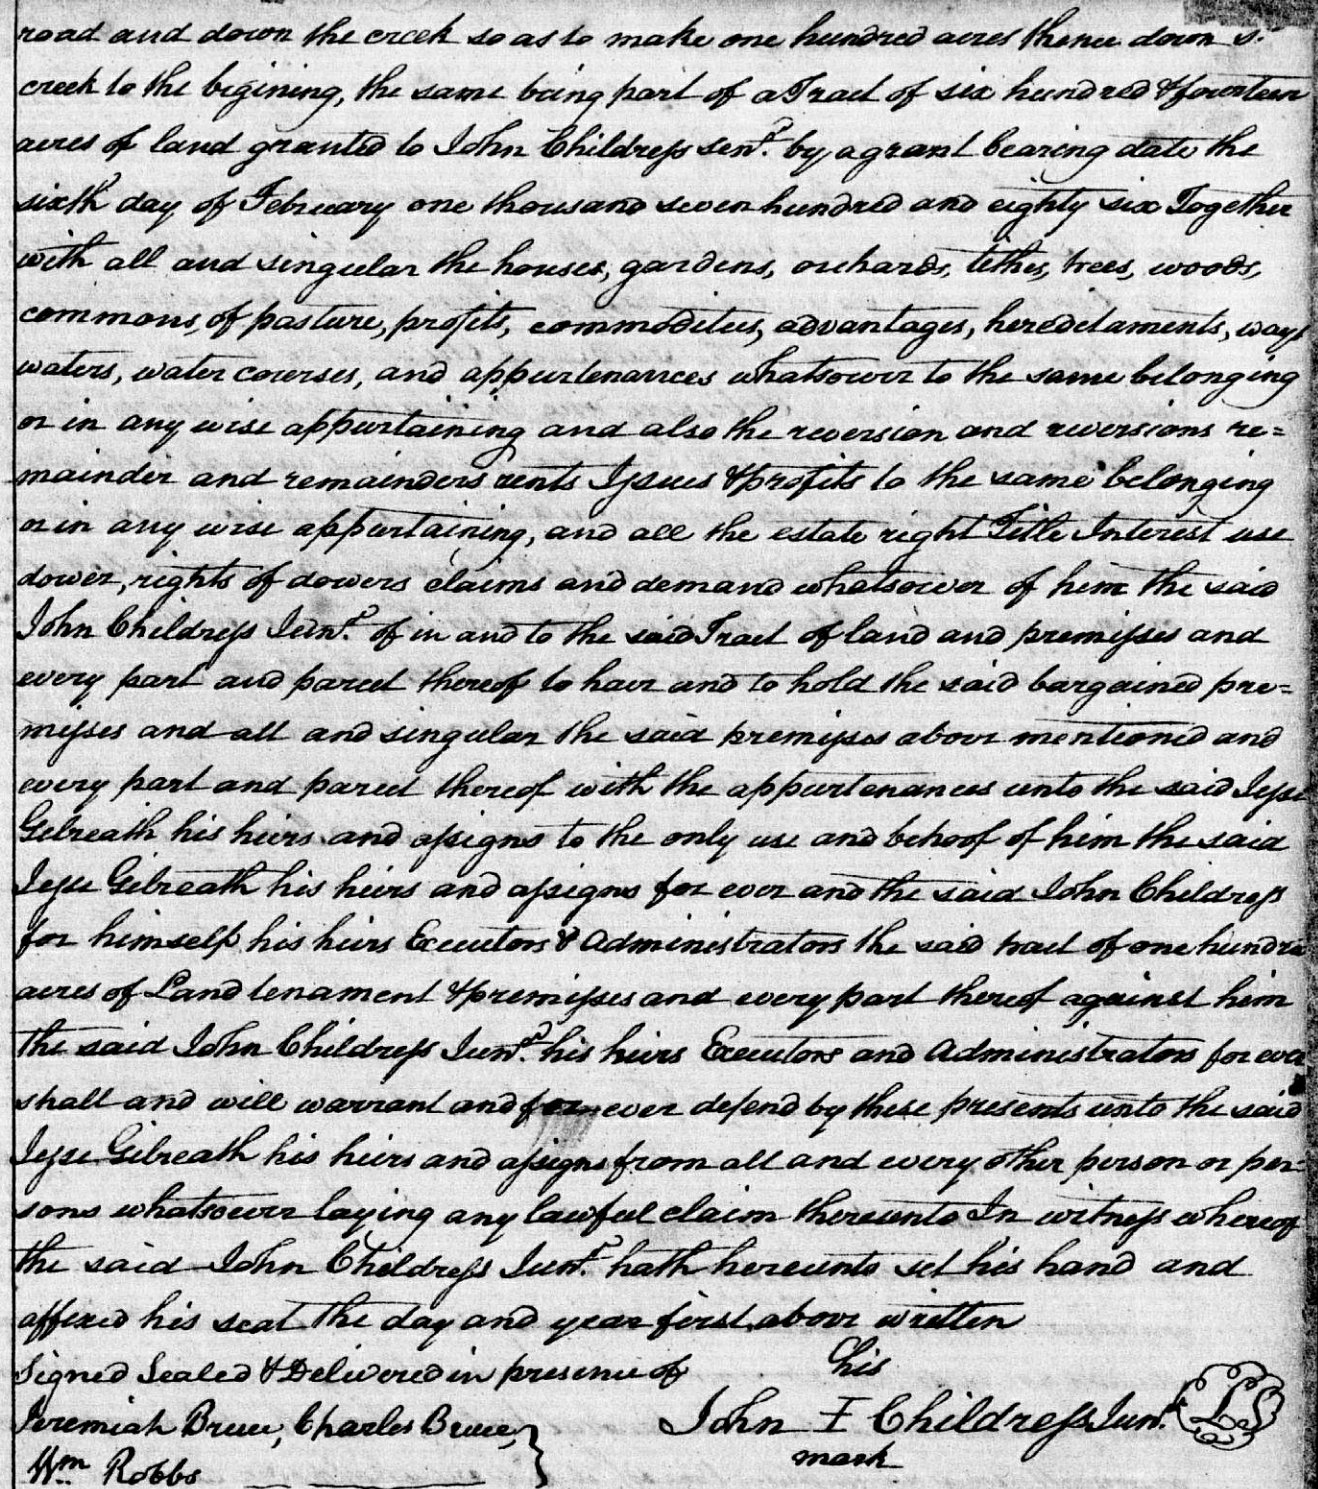 road and down the creek so as to make one hundred acres thence down sd
creek to the begining, the same being part of a Tract of six hundred & fourteen
acres of land granted to John Childress Senr. by a grant bearing date the
sixth day of February one thousand seven hundred and eighty six Together
with all and singular the houses, gardens, orchards, tithes, trees, woods,
commons, of pasture, profits, commodities, advantages, hereditaments, ways
waters, water courses, and appurtenances whatsoever to the same belonging
or in any wise appurtaining and also the reversion and reversions re=
mainder and remainders rents Issues & profits to the same belonging
or in any wise appurtaining, and all the estate right Title Interest use
dower, rights of dowers claims and demand whatsoever of him the said
John Childress Junr. of in and to the said Tract of land and premisses and
every part and parcel thereof to have and to hold the said bargained pre=
misses and all and singular the said premisses above mentioned and
every part and parcel thereof with the appurtenances unto the said Jesse
Gilreath his heirs and assigns to the only use and behoof of him the said
Jesse Gilreath his heirs and assigns for ever and the said John Childress
for himself his heirs Executors & Administrators the said tract of one hundred
acres of Land tenament & premisses and every part thereof against him
the said John Childress Junr. his heirs Executors and Administrators for ever
shall and will warrant and for ever defend by these presents unto the said
Jesse Gilreath his heirs and assigns from all and every other person or per=
sons whatsoever laying any lawful claim thereunto In witness whereof
the said John Childress Junr. hath hereunto set his hand and
affixed his seal the day and year first above written
Signed Sealed & Delivered in presence of his
Jeremiah Bruce, Charles Bruce, John I Childress Junr. LS
Wm Robbs mark